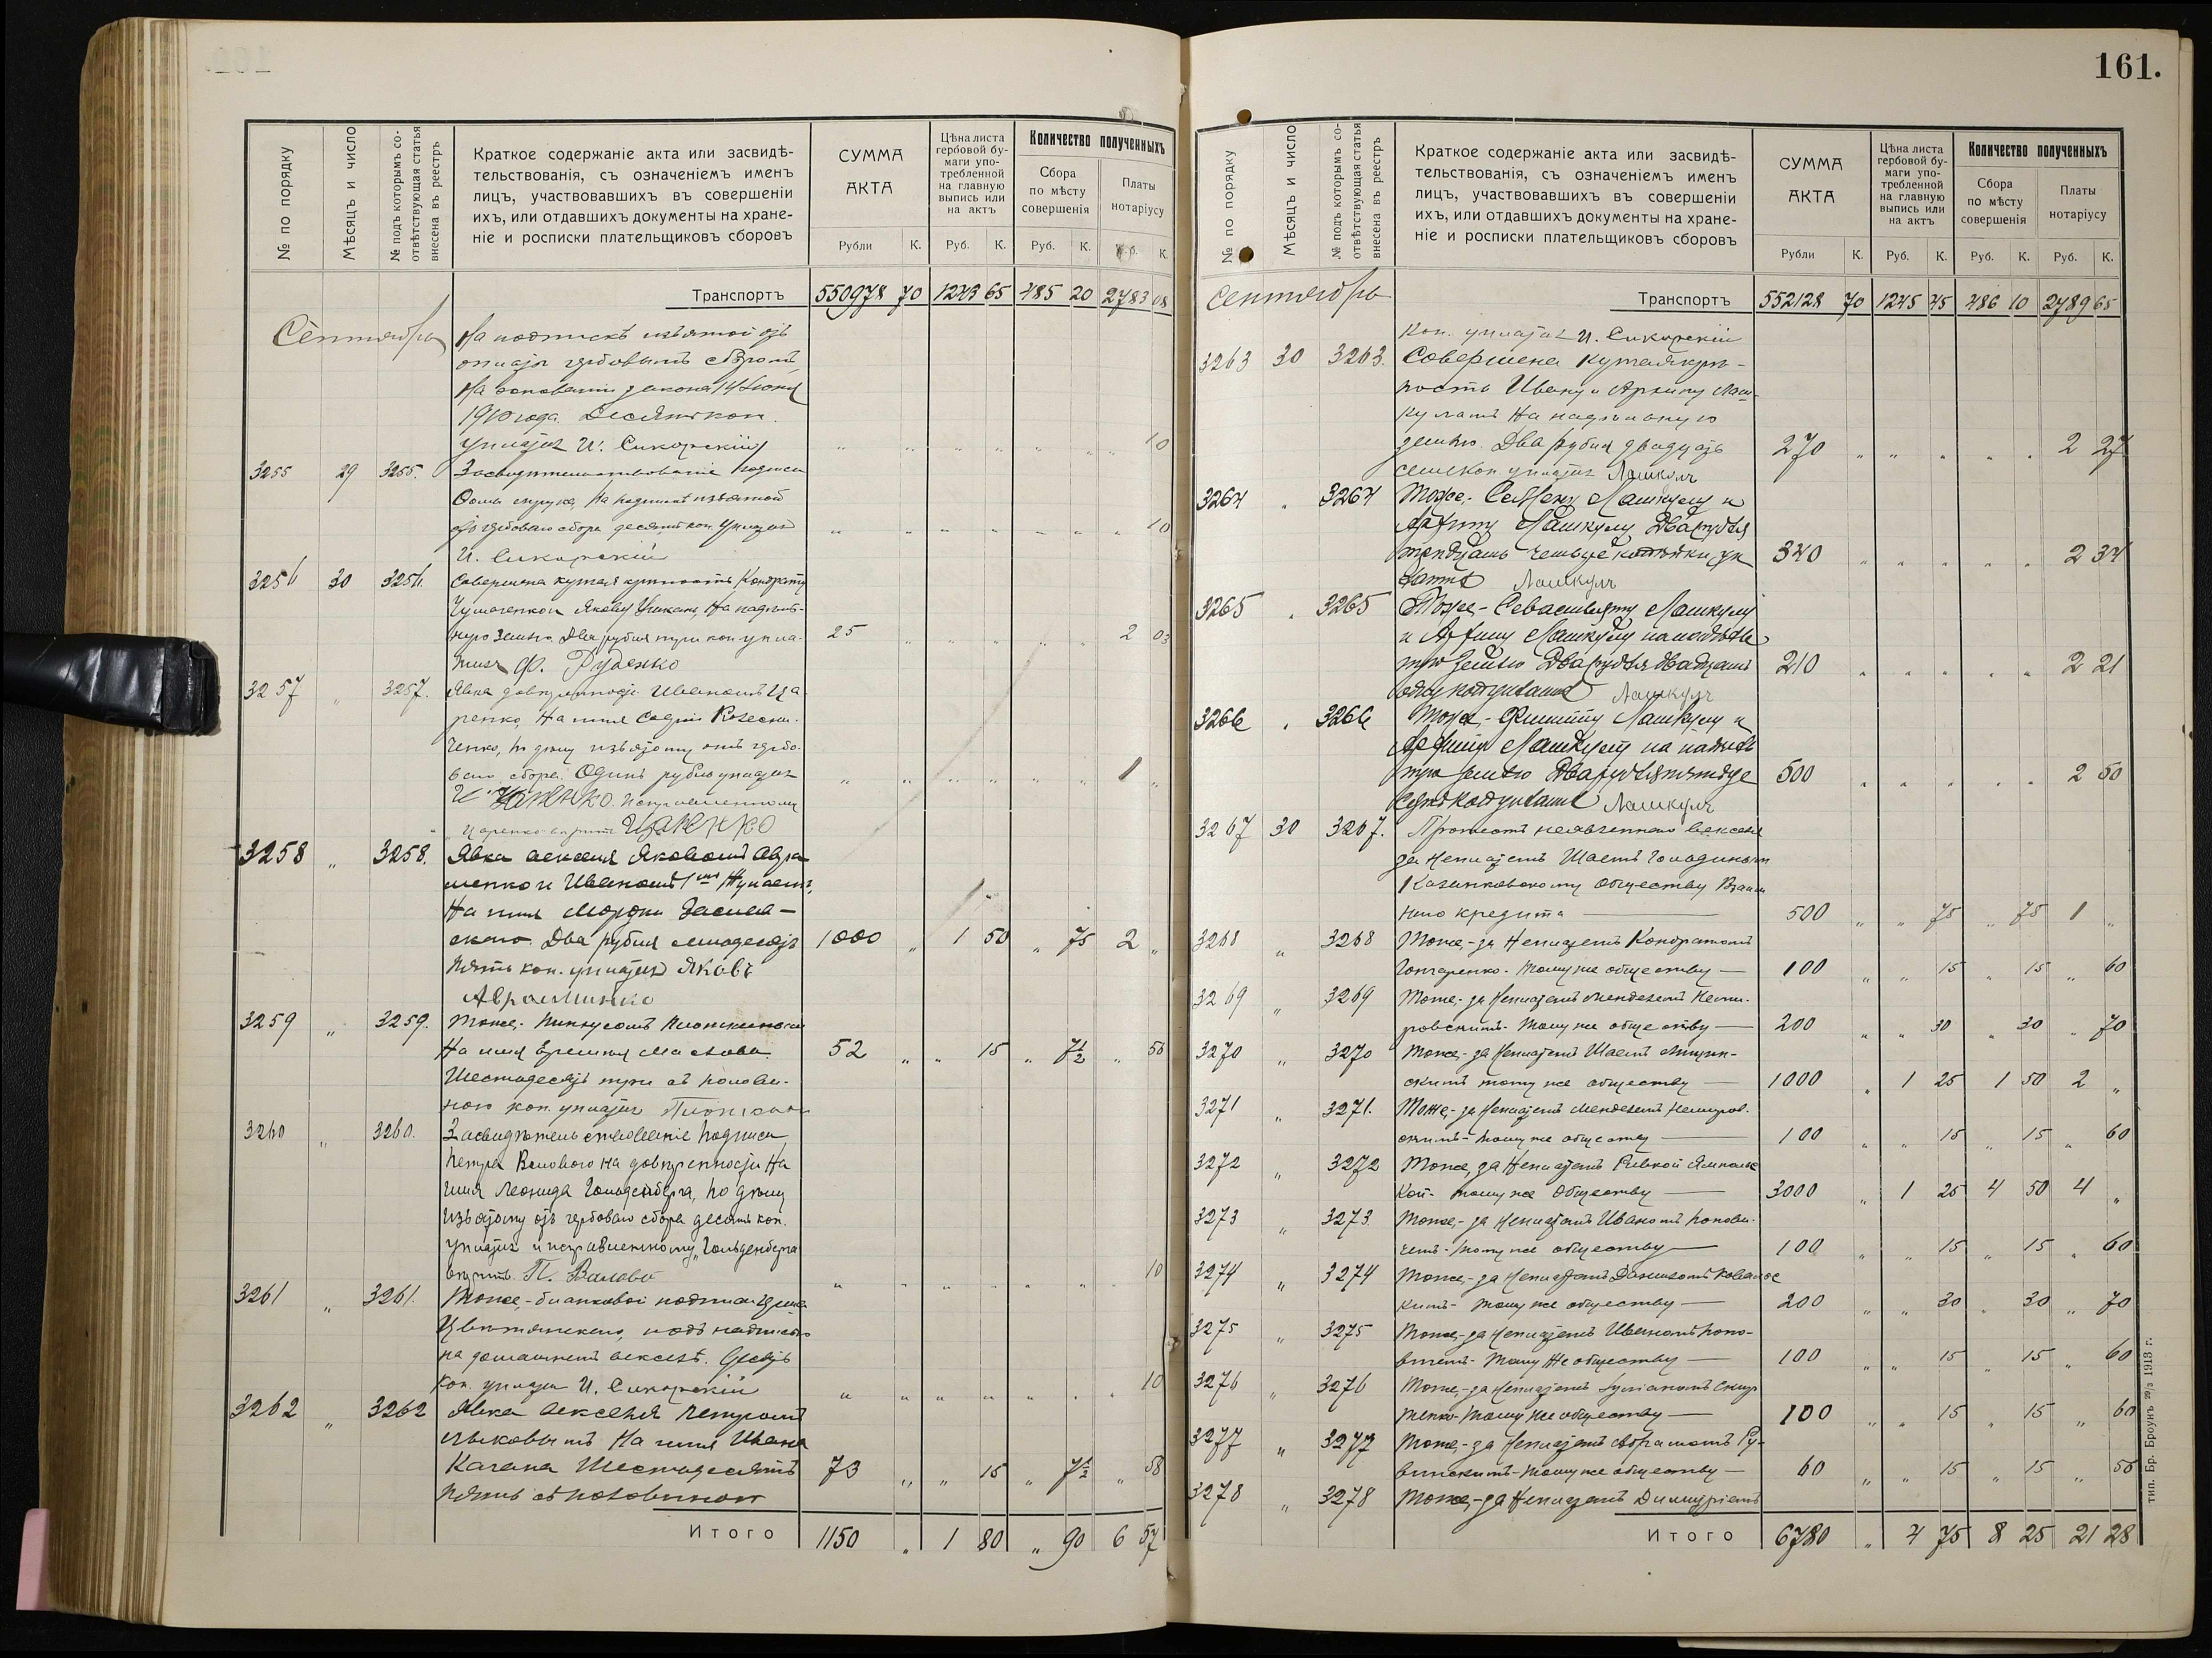 161.
№ по порядку
Мѣсяцъ и число
№ подъ которымъ со-
отвѣтствующая статья
внесена въ реестръ
Краткое содержаніе акта или засвидѣ-
тельствованія, съ означеніемъ именъ
лицъ, участвовавшихъ въ совершеніи
ихъ, или отдавшихъ документы на хране-
ніе и росписки плательщиковъ сборовъ
СУММА
АКТА
Рубли К.
Цѣна листа
гербовой бу-
маги упо-
требленной
на главную
выпись или
на актъ
Руб. К.
Количество полученныхъ
Сбора
по мѣсту
совершенія
Руб. К.
Платы
нотаріусу
К.
Транспортъ 550978 70 1243 65 485 20 2783 08
Сентябрь
На
гербовымъ
На основаніи закона 14 Іюня
1910 года. Десять коп.
уплатилъ И. Сикорскій 10
3255 29 3255. Засвидѣтельствованіе подписи
На изъятой
гербоваго сбора десять коп. уплатилъ 10
И. Сикорскій
3256 30 3256. Совершена купчая крѣпость Кондрату
Якову На надѣль-
ную землю. Два рубля три коп. упла- 25 2 03
тилъ Ф. Руденко
3257 " 3257. Явка довѣренности Иваномъ Ца-
ренко, На имя
ченко, по дѣлу изъятому отъ гербо-
ваго сбора. Одинъ рубль уплатилъ 1
И Царенко
Царенко вѣрить Царенко
3258 " 3258. Явка векселя Яковомъ Авра-
менко и Иваномъ
На имя Мордки Заслав-
скаго. Два рубля семьдесятъ 1000 1 50 75 2
пять коп. уплатилъ Яковъ
Авраменко
3259 " 3259. Тоже. Пинхусомъ
На имя 52 15 7½ 56
Шестьдесятъ три съ полови-
ною коп. уплатилъ
3260 " 3260. Засвидѣтельствованіе подписи
Петра Валового на довѣренности На
имя Леонида Гольденберга, по дѣлу
изъятому отъ гербоваго сбора десять коп.
уплатилъ и исправленному „Гольденберга
вѣрить. П. Валовой 10
3261 " 3261. Тоже - бланковой подписи
подъ надписью
на домашнемъ векселѣ. Десять
коп. уплатилъ И. Сикорскій 10
3262 " 3262 Явка векселя Петромъ
На имя Ивана
Качана Шестьдесятъ 73 15 7½ 58
пять съ половиною
Итого 1150 " 1 80 " 90 6 57
№ по порядку
Мѣсяцъ и число
№ подъ которымъ со-
отвѣтствующая статья
внесена въ реестръ
Краткое содержаніе акта или засвидѣ-
тельствованія, съ означеніемъ именъ
лицъ, участвовавшихъ въ совершеніи
ихъ, или отдавшихъ документы на хране-
ніе и росписки плательщиковъ сборовъ
СУММА
АКТА
Рубли К.
Цѣна листа
гербовой бу-
маги упо-
требленной
на главную
выпись или
на актъ
Руб. К.
Количество полученныхъ
Сбора
по мѣсту
совершенія
Руб. К.
Платы
нотаріусу
Руб. К.
Сентябрь Транспортъ 552128 70 1245 45 486 10 2789 65
Коп. уплатилъ И. Сикорскій
3263 30 3263. Совершена купчая крѣ-
пость Ивану и Архипу Лаш-
куламъ На надѣльную
землю. Два рубля двадцать 270 2 27
семь коп. уплатилъ Лашкулъ
3264 3264 Тоже - Лашкулу и
Лашкулу Два рубля
тридцать четыре копѣйки уп- 340 2 34
латилъ Лашкулъ
3265 3265 Тоже - Севастьяну Лашкулу
и Лашкулу на надѣль-
ную землю Два рубля двадцать 210 2 21
одну коп уплатилъ Лашкулъ
3266 3266 Тоже - Филиппу Лашкулу и
Лашкулу на надѣль-
ную землю Два рубля пятьде- 500 2 50
сятъ коп уплатилъ Лашкулъ
3267 30 3267. Протестъ неявленнаго векселя
за неплатежъ
Казанковскому Обществу Взаим-
наго кредита 500 75 75 1
3268 " 3268 Тоже, - за неплатежъ Кондратомъ
Гончаренко - тому же обществу 100 15 15 60
3269 " 3269 Тоже, - за неплатежъ Менделемъ Неми-
ровскимъ - тому же обществу 200 30 30 70
3270 " 3270 Тоже, - за неплатежъ
скимъ тому же обществу 1000 1 25 1 50 2
3271 " 3271. Тоже, - за неплатежъ Менделемъ Немиров-
скимъ - тому же обществу 100 15 15 60
3272 " 3272 Тоже, за неплатежъ Ривкой Ямпольс-
кой - тому же Обществу 3000 1 25 4 50 4
3273 " 3273. Тоже, - за неплатежъ Иваномъ Попови-
чемъ - тому же обществу 100 15 15 60
3274 " 3274 Тоже, - за неплатежъ
кимъ - тому же обществу 200 30 30 70
3275 " 3275 Тоже, - за неплатежъ Иваномъ Попо-
вичемъ - тому же обществу 100 15 15 60
3276 " 3276 Тоже, - за неплатежъ
тому же обществу 100 15 15 60
3277 " 3277 Тоже, - за неплатежъ Абрамомъ Ру-
винскимъ - тому же обществу 60 15 15 56
3278 " 3278 Тоже, - за неплатежъ Димитріемъ
Итого 6780 " 4 75 8 25 21 28
тип. Бр. Броунъ 29/3 1913 г.